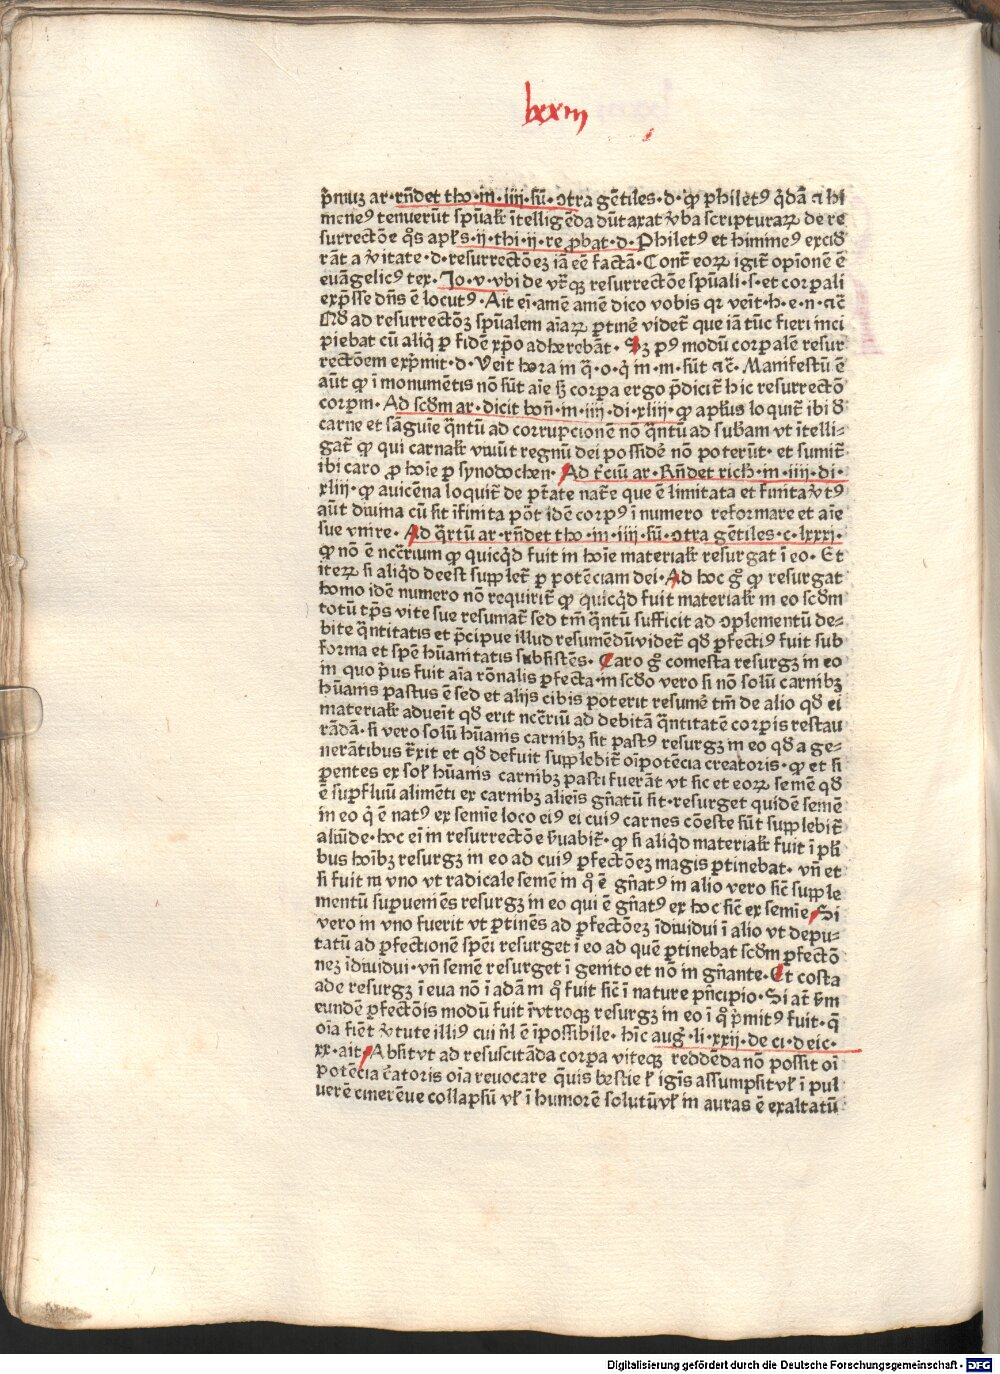 lxxiij
p̄muꝫ ar·rñdet tho·in·iiij·sū·ↄtra gētiles·d·ꝙ philetꝰ q̄dā ⁊ hi
meneꝰ tenuerūt spūaƚr ītelligēda dūtaxat v̄ba scripturaꝝ de re
surrectōe q̄s apƚs·ij·thi·ij·reꝓbat·d·Philetꝰ et himineꝰ exciđ
rāt a v̄itate·d·resurrectōeꝫ iā eē factā·Contͣ eoꝝ igit̄ opīonē ē
euāgelicꝰ tex·Jo·v·vbi de vtͣqꝫ resurrectōe spūali·s·et corꝑali
exp̄sse dñs ē locutꝰ·Ait ei·amē amē dico vobis qꝛ veīt·h·e·n·⁊c̄
Qđ ad resurrectōꝫ spūalem aīaꝝ ꝑtinē videt̄ que iā tūc fieri inci
piebat cū aliq̄ ꝑ fidē xp̄o adherebāt·Sꝫ pꝰ modū corꝑalē resur
rectōem exp̄mit·d·Veīt hora in q̄·o·q̄ in·m·sūt ⁊c̄·Manifestū ē
aūt ꝙ ī monumētis nō sūt aīe sꝫ corꝑa ergo p̄dicit̄ hic resurrectō
corꝑm·Ad scđm ar·dicit boñ·in·iiij·di·xliij·ꝙ apƚus loquit̄ ibi đ
carne et sāguīe q̄ntū ad corrupcionē nō q̄ntū ad subām vt ītelli-
gat̄ ꝙ qui carnaƚr viuūt regnū dei possidē nō poterūt·et sumit̄
ibi caro ꝓ hoīe ꝑ synodochen·Ad t̄ciū ar·Rñdet rich·in·iiij·di·
xliij·ꝙ auicēna loquit̄ de ptāte natͣe que ē limitata et finita v̄tꝰ
aūt diuina cū sit īfinita pōt idē corpꝰ ī numero reformare et aīe
sue vnire·Ad q̄rtū ar·rñdet tho·in·iiij·sū·ↄtra gētiles·c·lxxxj·
ꝙ nō ē nc̄crium ꝙ quicq̄d fuit in hoīe materiaƚr resurgat ī eo·Et
iteꝝ si aliq̄d deest supplet̄ ꝑ potēciam dei·Ad hoc gͦ ꝙ resurgat
homo idē numero nō requirit̄ ꝙ quicq̄d fuit materiaƚr in eo scđm
totū tp̄s vite sue resumat̄ sed tm̄ q̄ntū sufficit ad ↄplementū de-
bite q̄ntitatis et p̄cipue illud resumēdū videt̄ qđ ꝑfectiꝰ fuit sub
forma et spē hūanitatis subsistēs·Caro gͦ comesta resurgꝫ in eo
in quo pͥus fuit aīa rōnalis ꝑfecta·in scđo vero si nō solū carnibꝫ
hūanis pastus ē sed et alijs cibis poterit resumē tm̄ de alio qđ ei
materiaƚr adueīt qđ erit nc̄criū ad debitā q̄ntitatē corꝑis restau
rādā·si vero solū hūanis carnibꝫ sit pastꝰ resurgꝫ in eo qđ a ge-
nerātibus tͣxit et qđ defuit supplebit̄ oīpotēcia creatoris·ꝙ et si
ꝑentes ex soƚ hūanis carnibꝫ pasti fuerāt vt sic et eoꝝ semē qđ
ē suꝑfluū alimēti ex carnibꝫ alieīs gñatū sit·resurget quidē semē
in eo qͥ ē natꝰ ex semīe loco eiꝰ ei cuiꝰ carnes cōeste sūt supplebit̄
aliūde·hoc ei in resurrectōe s̄uabit̄·ꝙ si aliq̄d materiaƚr fuit ī pƚi
bus hoībꝫ resurgꝫ in eo ad cuiꝰ ꝑfectōeꝫ magis ꝑtinebat·vñ et
si fuit in vno vt radicale semē in qͦ ē gñatꝰ in alio vero sic̄ supple
mentū suꝑueniēs resurgꝫ in eo qui ē gñatꝰ ex hoc sic̄ ex semīe·Si
vero in vno fuerit vt ꝑtinēs ad ꝑfectōeꝫ īdiuidui ī alio vt depu-
tatū ad ꝑfectionē spēi resurget ī eo ad quē ꝑtinebat scđm ꝑfectō
neꝫ īdiuidui·vñ semē resurget ī genito et nō in gñante·Et costa
ade resurgꝫ ī eua nō ī adām qͦ fuit sic̄ ī nature pͥncipio·Si at̄ s̄m
eundē ꝑfectōis modū fuit ī vtroqꝫ resurgꝫ in eo ī qͦ pͥmitꝰ fuit·q̄
oīa fiēt v̄tute illiꝰ cui nƚ ē īpossibile·hīc auḡ·li·xxij·de ci·d eic·
xx·ait·Absit vt ad resuscitāda corꝑa viteqꝫ reddēda nō possit oī
potēcia c̄atoris oīa reuocare q̄uis bestie ƚ igīs assumpsit vƚ ī pul
uerē cinerēue collapsū vƚ ī humorē solutū vƚ in auras ē exaltatū
Digitalisierung gefördert durch die Deutsche Forschungsgemeinschaft · DFG